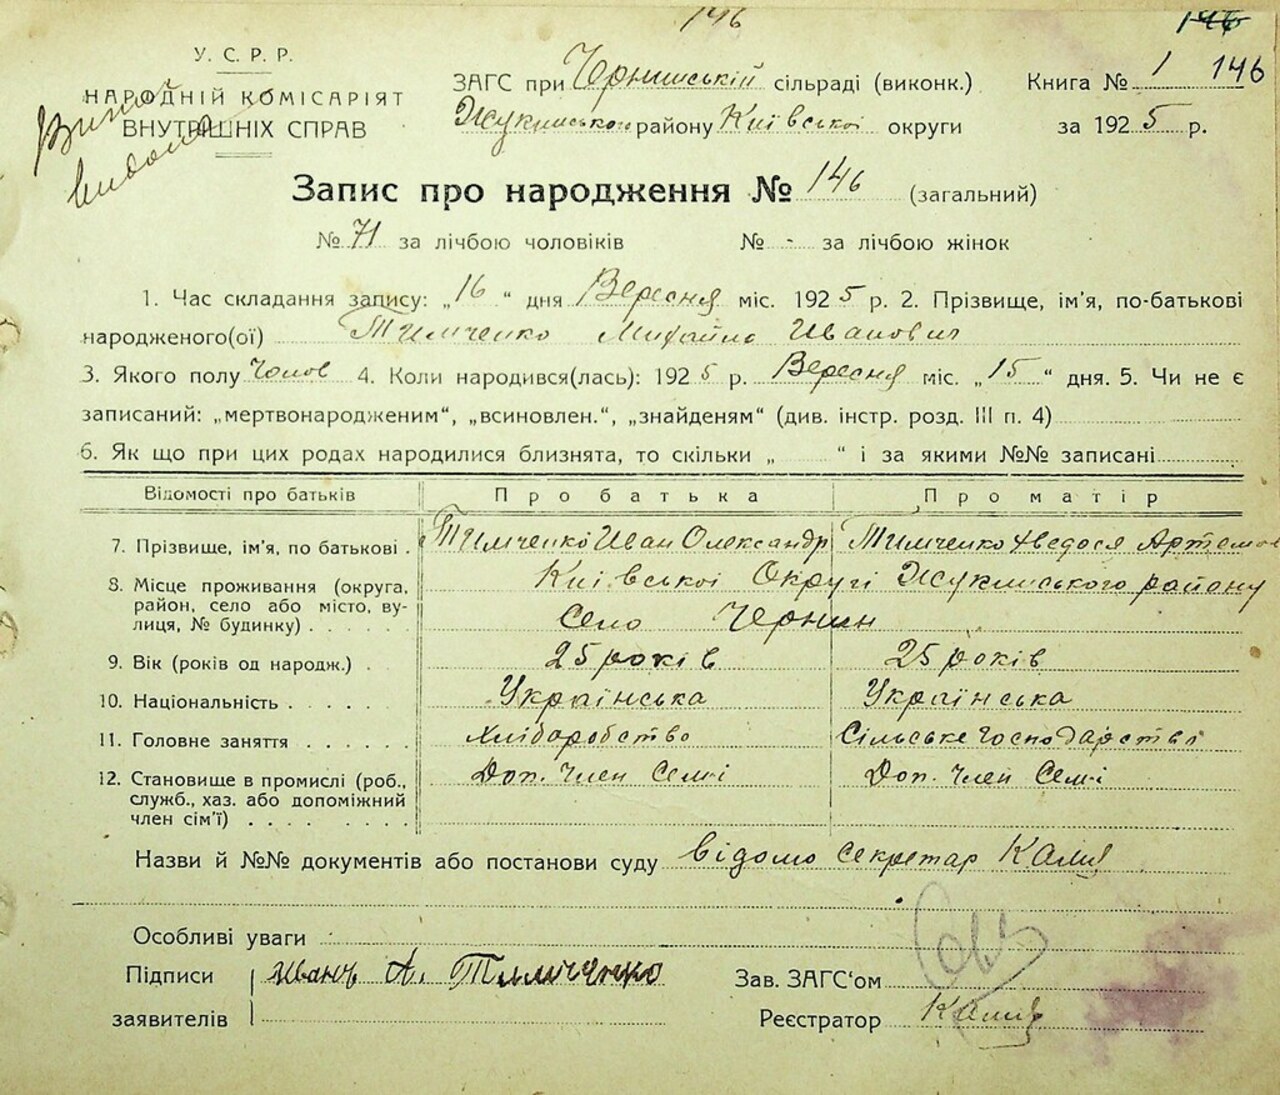 146 146
У. С. Р. Р.
НАРОДНІЙ КОМІСАРІЯТ
ВНУТРІШНІХ СПРАВ
ЗАГС при Чернинській сільраді (виконк.) Книга № 1 146
Жукинського району Київської округи за 1925 р.
Запис про народження № 146 (загальний)
№ 71 за лічбою чоловіків № - за лічбою жінок
1. Час складання запису: „16“ дня Вересня міс. 1925 р. 2. Прізвище, ім'я, по-батькові
народженого(ої) Тимченко Михайло Иванович
3. Якого полу Чолов 4. Коли народився(лась): 1925 р. Вересня міс. „15“ дня. 5. Чи не є
записаний: „мертвонародженим“, „всиновлен.“, „знайденям“ (див. інстр. розд. III п. 4)
6. Як що при цих родах народилися близнята, то скільки „ “ і за якими №№ записані
Відомості про батьків Про батька Про матір
7. Прізвище, ім'я, по батькові . Тимченко Иван Олександр Тимченко Хведося Артемов
8. Місце проживання (округа, Київської Округі Жукинського району
район, село або місто, ву-
лиця, № будинку) . . . . . . Село Чернин
9. Вік (років од народж.) . 25 років 25 років
10. Національність . . . . . Українська Українська
11. Головне заняття . . . . . . Хліборобство Сільське Господарство
12. Становище в промислі (роб., Доп. Член Семі Доп. Член Семі
служб., хаз. або допоміжний
член сім'ї) . . . . . . . .
Назви й №№ документів або постанови суду відомо секретар
Особливі уваги
Підписи Иванъ А. Тимченко Зав. ЗАГС'ом
заявителів Реєстратор